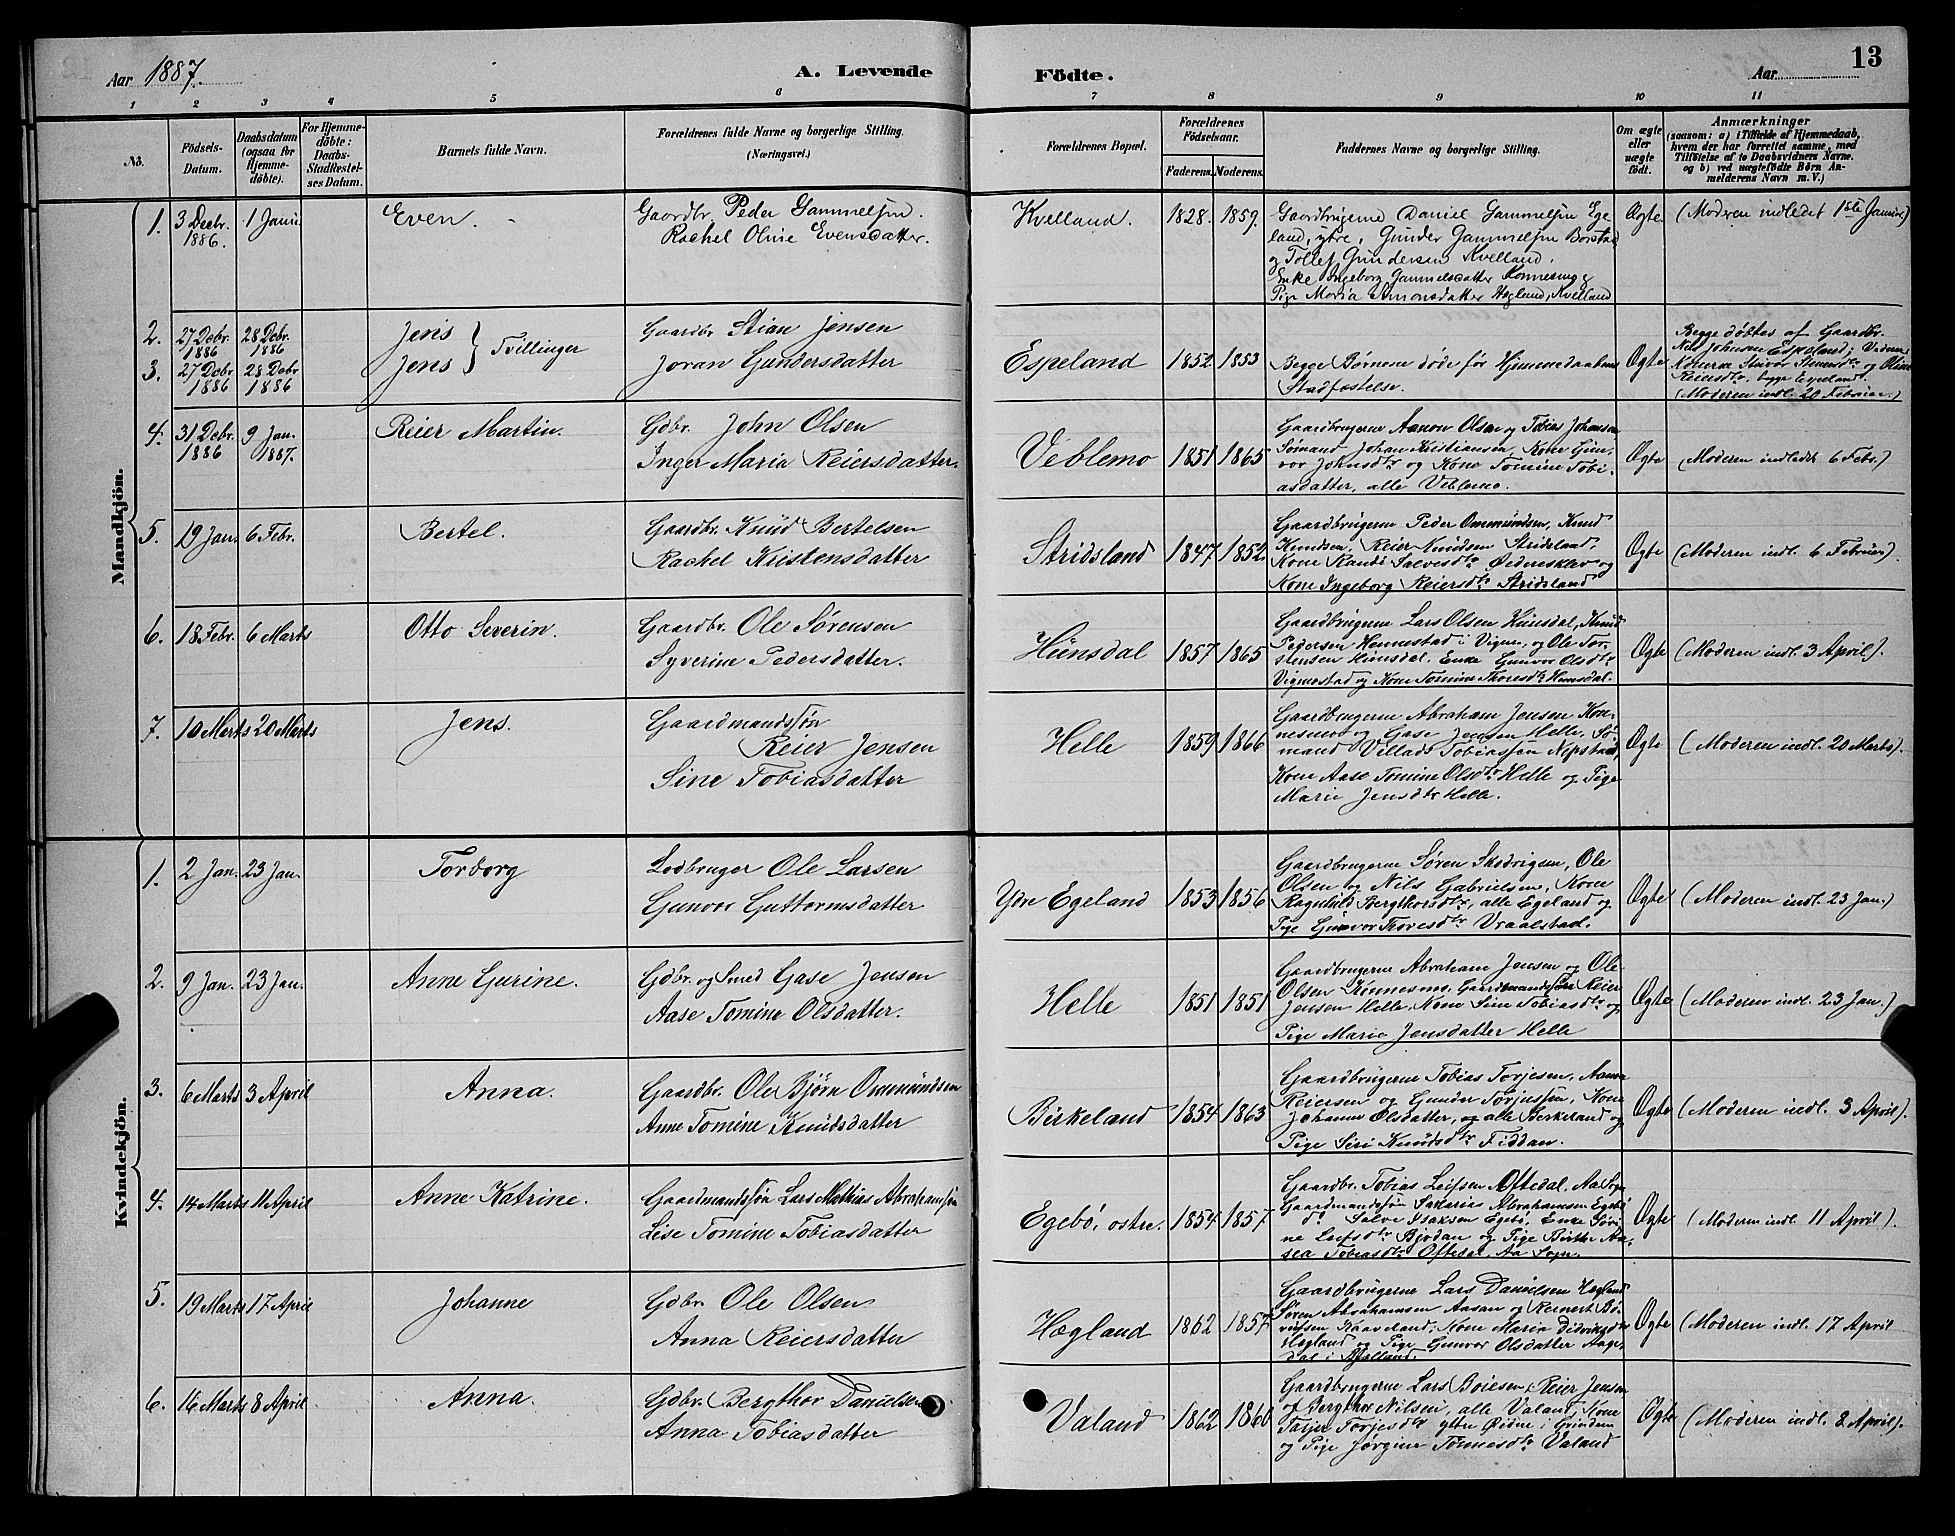 Aar 1887.
A. Levende Födte.
Aar
13
1 2 3 4 5 6 7 8 9 10 11
No.
Födsels-Datum.
Daabsdatum (ogsaa for Hjemme-döbte).
For Hjemme-döbte: Daabs-Stadfæstel-ses Datum.
Barnets fulde Navn.
Forældrenes fulde Navne og borgerlige Stilling. (Næringsvei.)
Forældrenes Bopæl.
Forældrenes Födselsaar.
Faderens. Moderens.
Faddernes Navne og borgerlige Stilling.
Om ægte eller uægte födt.
Anmærkninger
(saasom: a) i Tilfælde af Hjemmedaab, hvem der har forrettet samme, med Tilföielse af to Daabsvidners Navne. og b) ved uægtefödte Börn An-melderens Navn m. V.)
Mandkjön.
1. 3 Decbr. 1886. 1 Janr. Even.
Gaardbr. Peder Gammelsen.
Rachel Oline Evensdatter.
Kvelland. 1828. 1859.
Gaardbrugerne Daniel Gammelsen Ege
land, ytre, Gunder Gammelsen Borstad
og Tollef Gundersen Kvelland,
Enke Ingeborg Gammelsdatter Konnesmo &
Pige Maria Amonsdatter Høgland, Kvelland
Ægte (Moderen indledet 1ste Januar)
2. 27 Debr. 1886 28 Debr. 1886 Jens
3. 27 Debr 1886 28 Debr 1886 Jens } Tvillinger
Gaardbr. Stian Jensen
Joran Gundersdatter
Espeland 1852 1853
Begge Børnene døde før Hjemmedaabens
Stadfæstelse.
Ægte
Begge döbtes af Gaardbr.
Nils Johnsen Espeland; Vidner
Konerne Siuvor Stensdtr og Oline
Reiersdtr, begge Espeland.
(Moderen indl. 20 Februar.)
4. 31 Debr. 1886 9 Jan. 1887. Reier Martin.
Gdbr. John Olsen
Inger Maria Reiersdatter.
Veblemo 1851 1865
Gaardbrugerne Aanon Olsen og Tobias Johansen
Sømand Johan Kristiansen, Kone Gun-
vor Johnsdtr og Kone Tomine Tobi-
asdatter, alle Veblemo.
Ægte (Moderen indledt 6 Febr.)
5. 19 Jan. 6 Febr. Bertel.
Gaardbr. Knud Bertelsen
Rachel Kristensdatter
Stridsland 1847 1852
Gaardbrugerne Peder Ommundsen, Knud
Knudsen, Reier Knudsen Stridsland,
Kone Randi Salvesdtr Øidnesklev og
Kone Ingeborg Reiersdtr Stridsland
Ægte (Moderen indl. 6 Februar)
6. 18 Febr. 6 Marts Otto Severin.
Gaardbr. Ole Sørensen
Syverine Pedersdatter.
Hunsdal 1857 1865
Gaardbrugerne Lars Olsen Hunsdal, Knud
Pedersen Hennestad i Vigmo, og Ole Tor-
stensen Hunsdal, Enke Gunvor Olsdtr
Vigmostad og Kone Tomine Thoresdtr Hunsdal.
Ægte (Moderen indl. 3 April).
7. 10 Marts 20 Marts Jens.
Gaardmandssøn
Reier Jensen
Sine Tobiasdatter
Helle 1859 1866
Gaardbrugerne Abraham Jensen Kon-
nesmo og Gase Jensen Helle, Sø-
mand Villads Tobiassen Nipstad,
Kone Aase Tomine Olsdtr Helle og Pige
Marie Jensdtr Helle.
Ægte (Moderen indl. 20 Marts).
Kvindekjön.
1. 2 Jan. 23 Jan. Torborg
Lodbruger Ole Larsen
Gunvor Guttormsdatter
Ydre Egeland 1853 1856
Gaardbrugerne Søren Skodvigsen, Ole
Olsen og Nils Gabrielsen, Kone
Ragnhild Bergthorsdtr, alle Egeland og
Pige Gunvor Thoresdtr Vraalstad.
Ægte (Moderen indl. 23 Jan.)
2. 9 Jan. 23 Jan. Anne Gurine.
Gdbr. og Smed Gase Jensen
Aase Tomine Olsdatter.
Helle 1851 1851
Gaardbrugerne Abraham Jensen og Ole
Olsen Konnesmo, Gaardmandssøn Reier
Jensen Helle, Kone Sine Tobiasdtr og
Pige Marie Jensdatter Helle
Ægte (Moderen indl. 23 Jan.)
3. 6 Marts 3 April Anna.
Gaardbr. Ole Bjørn Ommundsen
Anne Tomine Knudsdatter
Birkeland 1854 1863
Gaardbrugerne Tobias Torjesen, Aanon
Reiersen og Gunder Torjussen, Kone
Johanne Olsdatter, og alle Berkeland og
Pige Siri Knudsdtr Fiddan.
Ægte (Moderen indl. 3 April).
4. 14 Marts 11 April Anne Katrine.
Gaardmandssøn Lars Mathias Abrahamsen
Lise Tomine Tobiasdatter
Egebö, østre. 1854 1857
Gaardbr. Tobias Leifsen Oftedal, Aa Sogn
Gaardmandssøn Sakarias Abrahamsen Egebø
do Salve Isaksen Egebö, Enke Siri-
ne Leifsdtr Bjodan og Pige Birthe An-
sea Tobiasdtr Oftedal, Aa Sogn.
Ægte (Moderen indl. 11 April).
5. 19 Marts 17 April Johanne
Gdbr. Ole Olsen
Anna Reiersdatter
Høgland 1862 1857
Gaardbrugerne Lars Danielsen Høgland
Søren Abrahamsen Aasan og Reinert
Kaaveland, Kone Maria Didriksdtr
Høgland og Pige Gunvor Olsdatter Aage-
dal i Bjelland.
Ægte (Moderen indl. 17 April
6. 16 Marts 8 April Anna.
Gdbr. Bergthor Danielsen
Anna Tobiasdatter
Valand 1862 1860
Gaardbrugerne Lars Boiesen, Reier Jensen
og Bergthor Nilsen, alle Valand, Kone
Tarjer Torjesdtr ytre Øidne i Grindem
og Pige Jørgine Tønnesdtr Valand
Ægte (Moderen indl. 8 April).